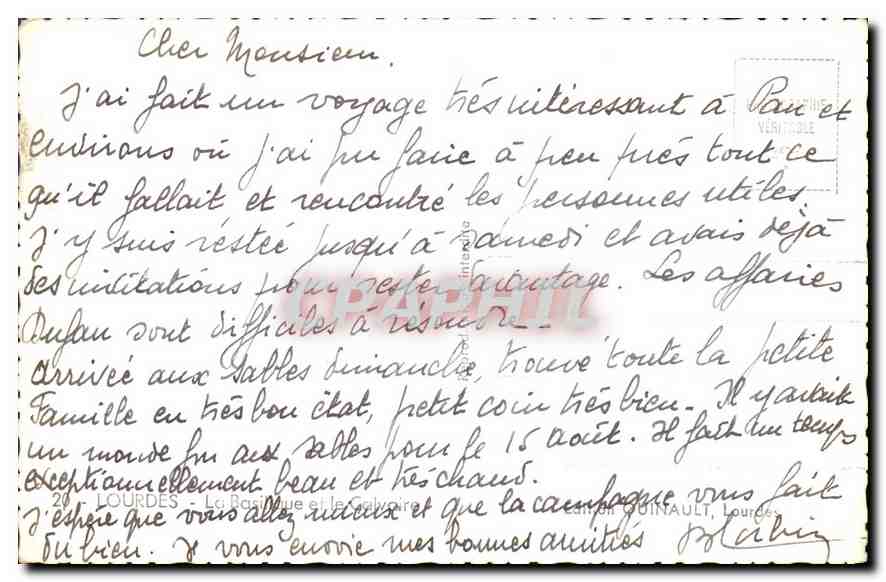 Cher Monsieur.
J'ai fait un voyage très intéressant à Pau et
environs où j'ai pu faire à peu près tout ce
qu'il fallait et rencontré les personnes utiles.
J'y suis restée jusqu'à samedi et avais déjà
des invitations pour rester davantage. Les affaires
Dufau sont difficiles à résoudre.
Arrivée aux Sables dimanche, trouvé toute la petite
famille en très bon état, petit coin très bien. Il y avait
un monde fou aux Sables pour le 15 août. Il fait un temps
exceptionnellement beau et très chaud.
J'espère que vous allez mieux et que la campagne vous fait
du bien. Je vous envoie mes bonnes amitiés
VÉRITABLE
Reproduction interdite
CPAPHIL
LOURDES - La Basilique et le Calvaire
Edition QUINAULT, Lourdes